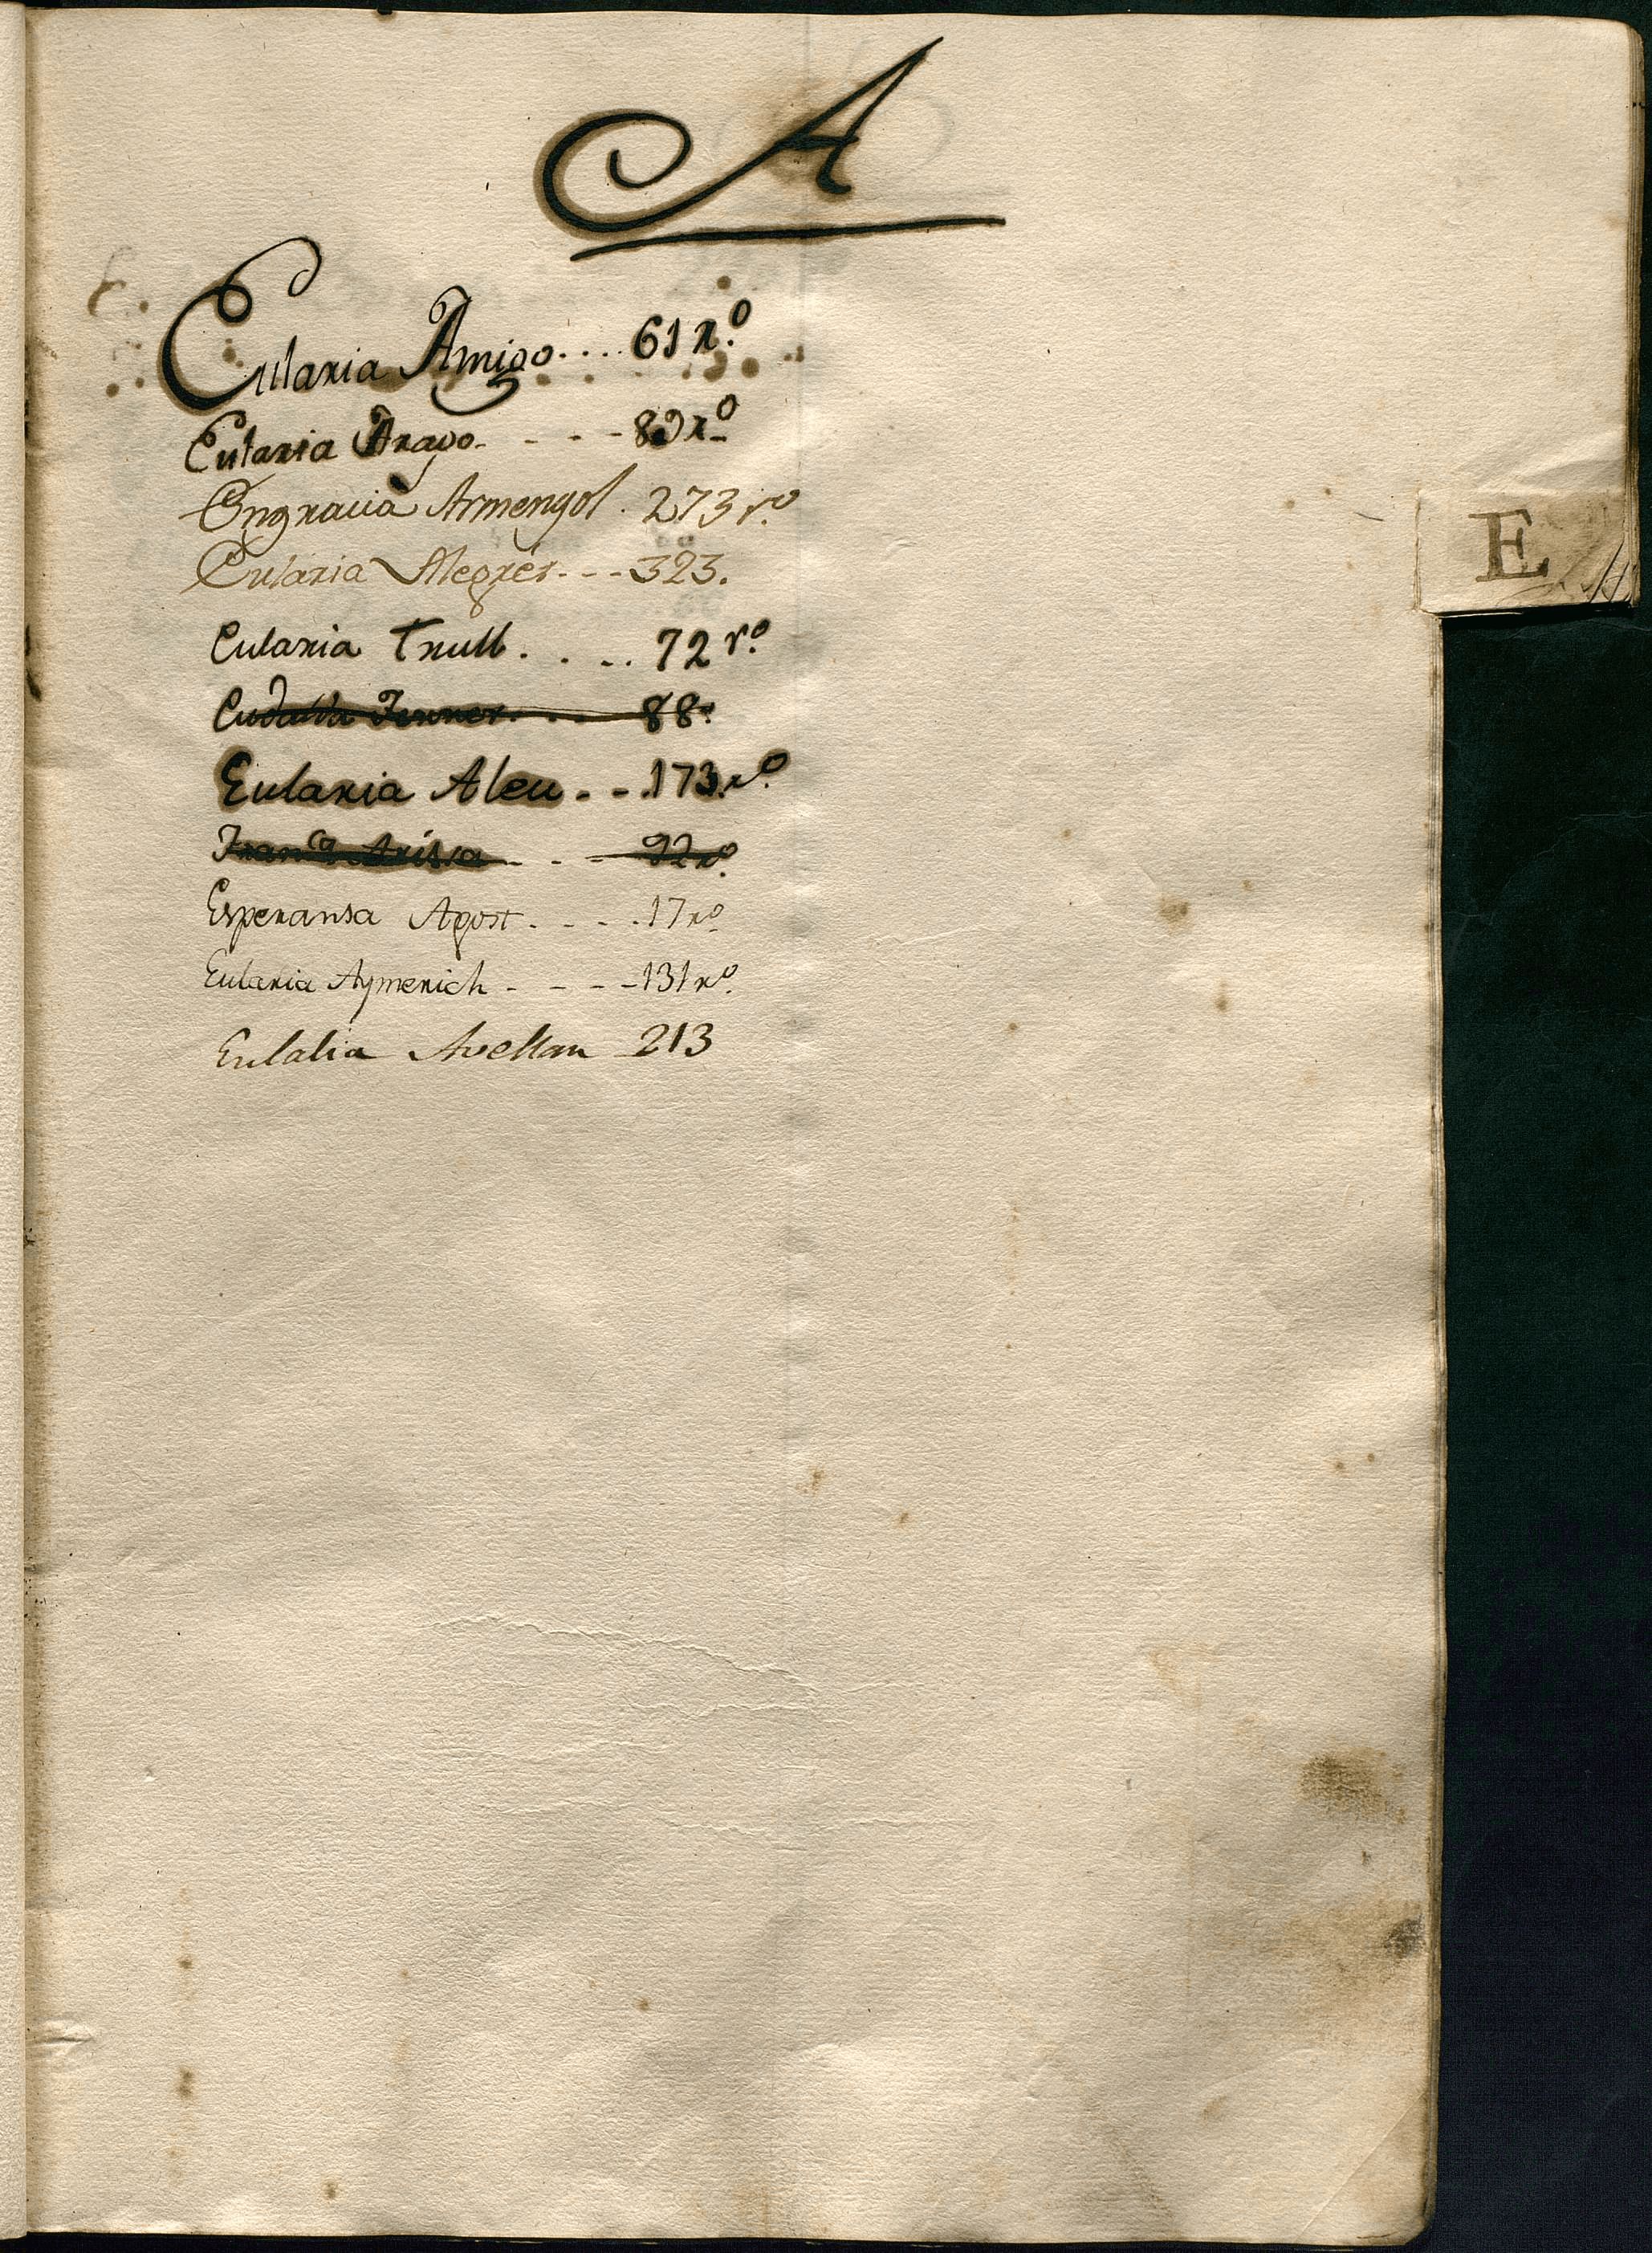 A
Eularia Amigo.... 61 ro.
Eularia Arago. - - - - 89 ro
Engracia Armengol . 273 ro
Eularia Alegrer - - - 323.
E
Eularia Trull. . . . . 72 ro.
Eudalda Ferrer. . . . 88.
Eularia Aleu - - . 173. ro.
Franca Arissa - . - 92 ro.
Esperansa Agost . - - . 17 ro
Eularia Aymerich - - - - 131 ro.
Eulalia Avellan 213